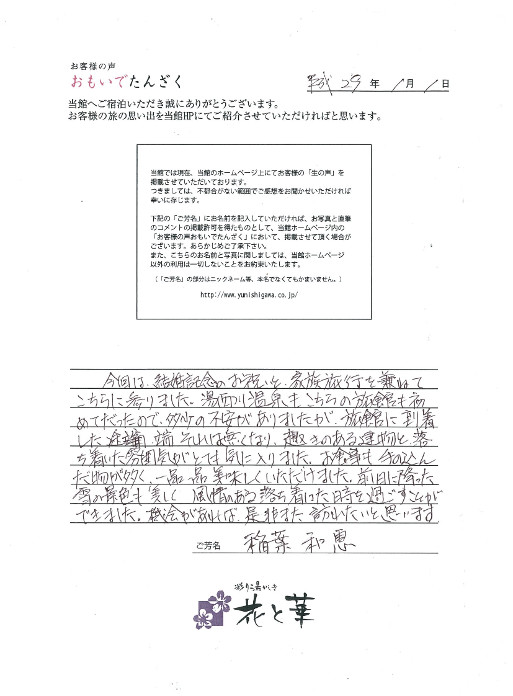 お客様の声
おもいでたんざく
平成 29 年 1 月 1 日
当館へご宿泊いただき誠にありがとうございます。
お客様の旅の思い出を当館HPにてご紹介させていただければと思います。
当館では現在、当館のホームページ上にてお客様の「生の声」を
掲載させていただいております。
つきましては、不都合がない範囲でご感想をお聞かせいただければ
幸いに存じます。
下記の「ご芳名」にお名前を記入していただければ、お写真と直筆
のコメントの掲載許可を得たものとして、当館ホームページ内の
「お客様の声おもいでたんざく」において、掲載させて頂く場合が
ございます。あらかじめご了承下さい。
また、こちらのお名前と写真に関しましては、当館ホームページ
以外の利用は一切しないことをお約束いたします。
（「ご芳名」の部分はニックネーム等、本名でなくてもかまいません。）
http://www.yunishigawa.co.jp/
今回は、結婚記念のお祝いと、家族旅行を兼ねて
こちらに参りました。湯西川温泉もこちらの旅館も初
めてだったので、多少の不安がありましたが、旅館に到着
した途端 それは無くなり、趣きのある建物と、落
ち着いた雰囲気がとても気に入りました。お食事も手の込ん
だ物が多く、一品一品美味しくいただけました。前日に降った
雪の景色も美しく 風情のある落ち着いた日時を過ごすことが
できました。機会があれば、是非また訪れたいと思います
ご芳名 稲葉 和恵
彩り湯かしき
花と華